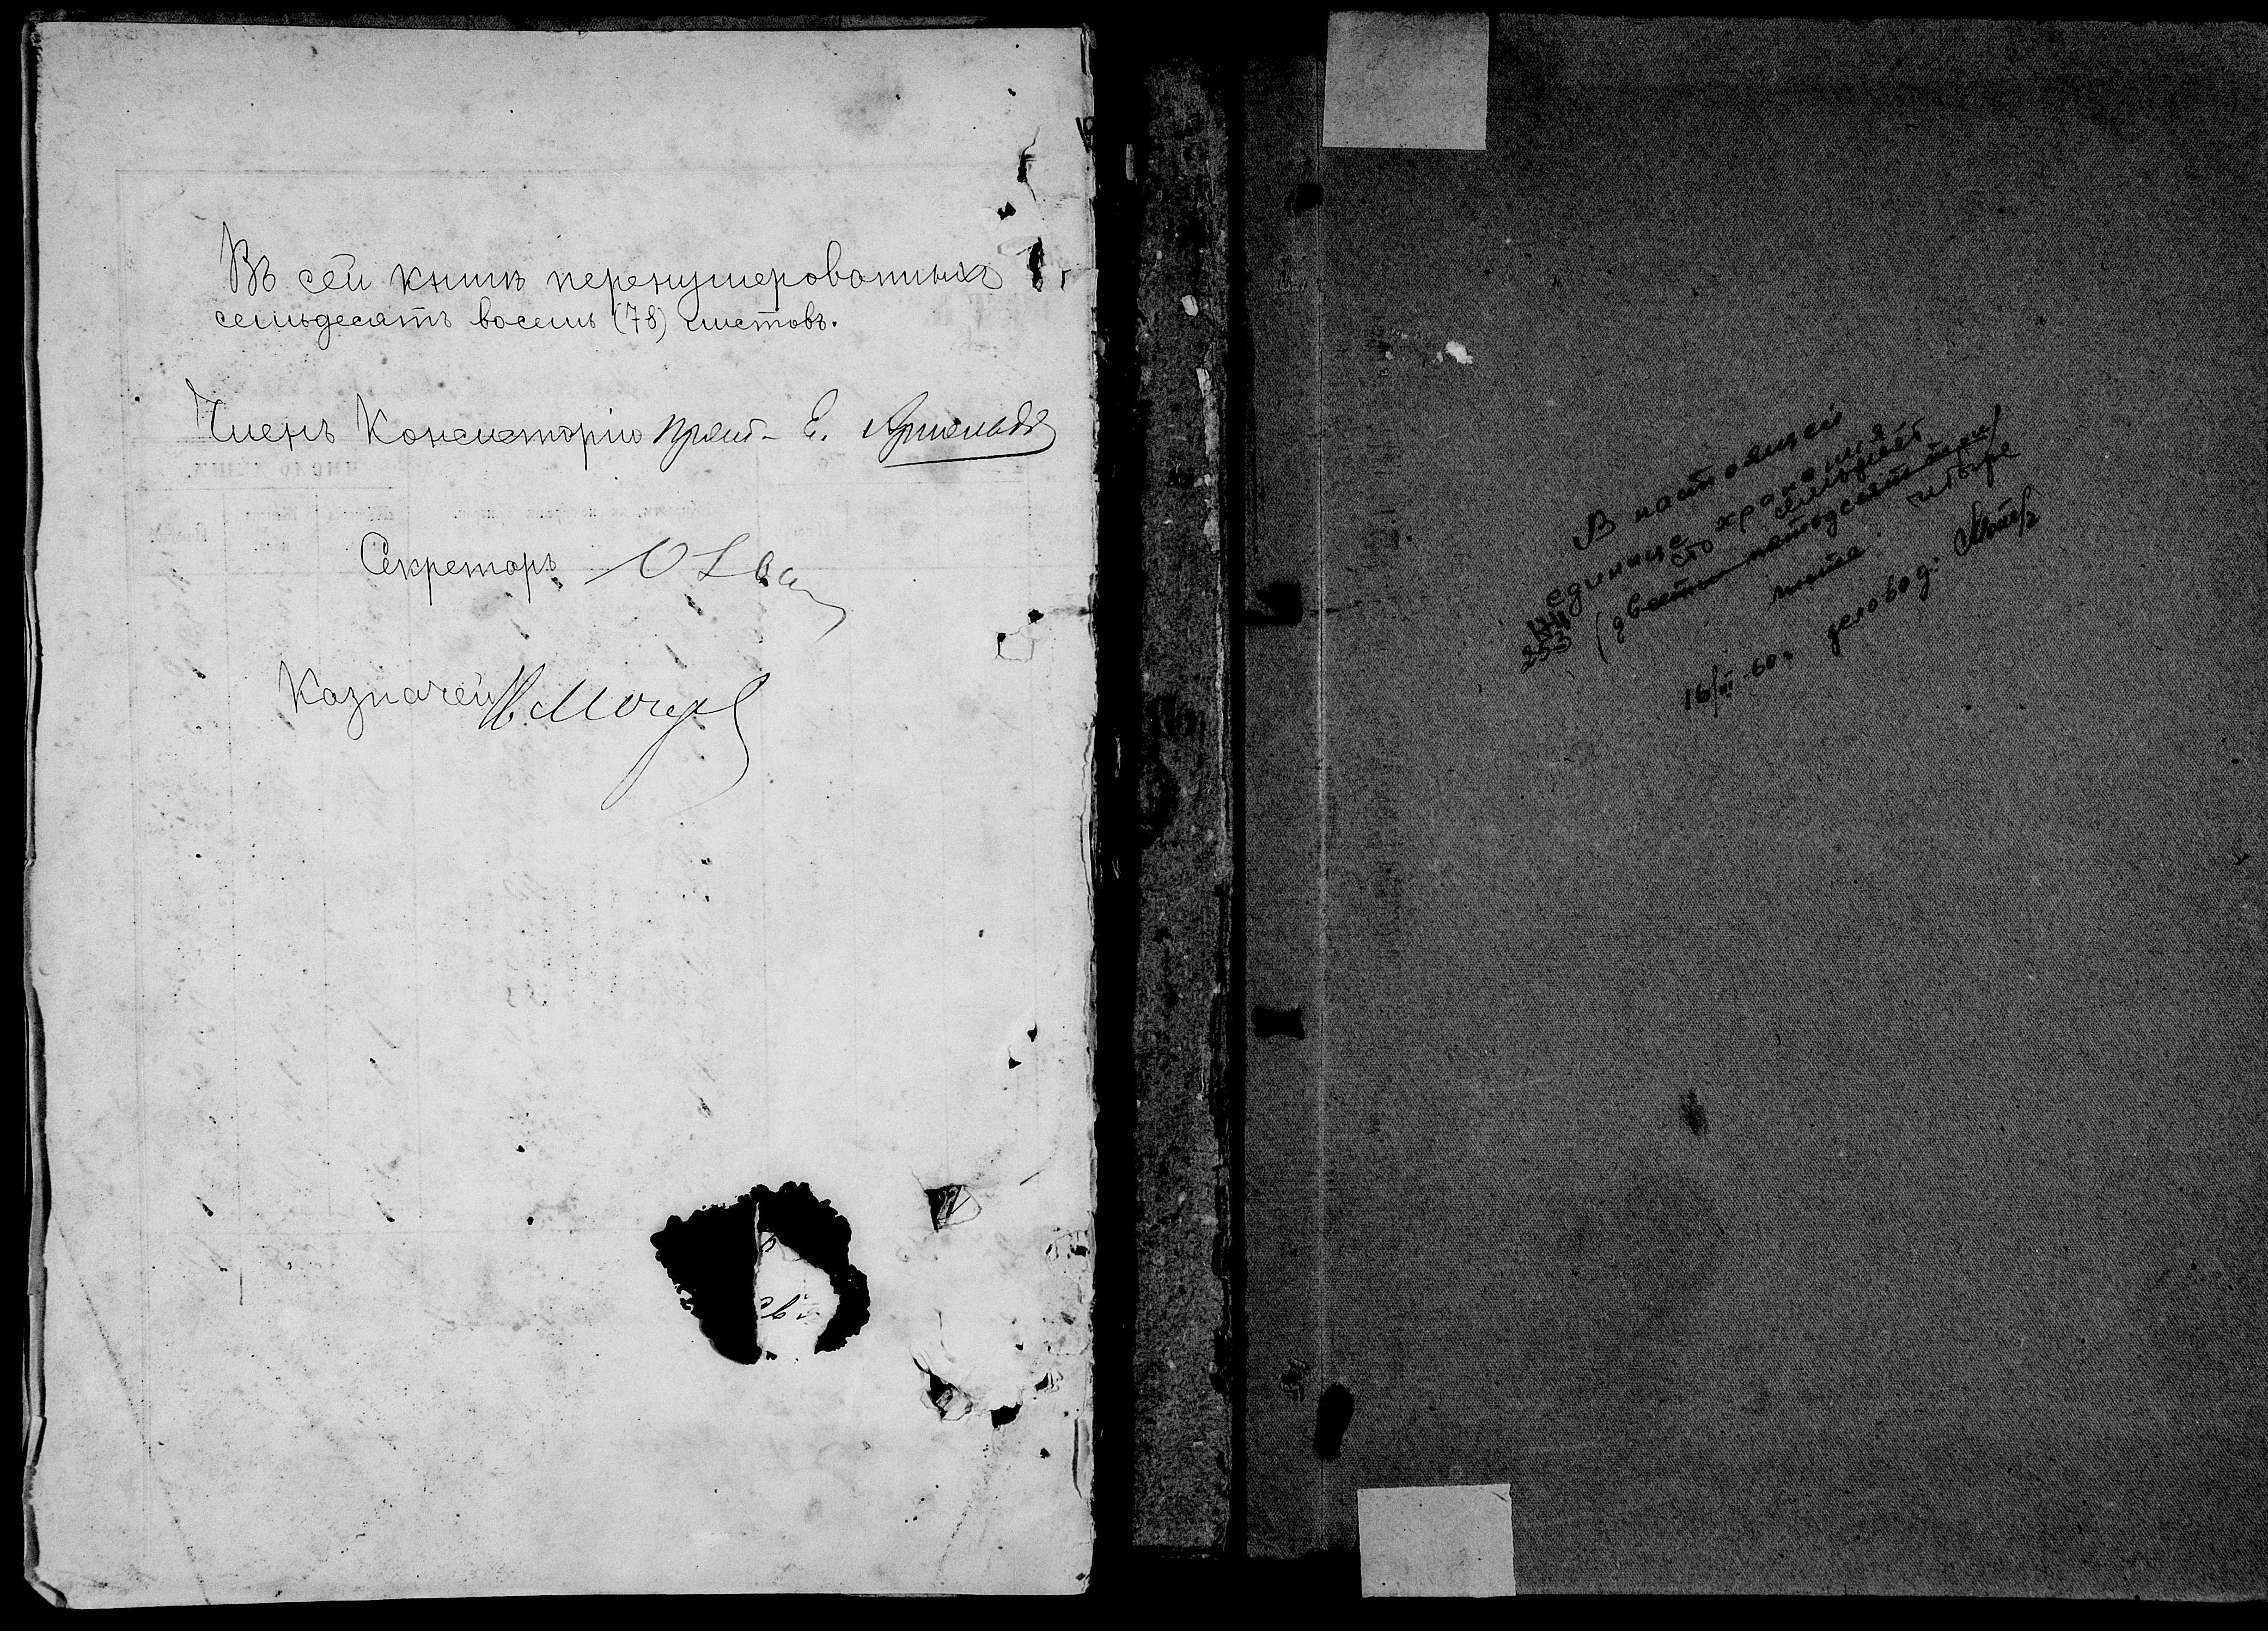 Въ сей книгѣ перенумерованныхъ
семьдесятъ восемь (78) листовъ.
Членъ Консисторіи прот. Е.
Секретарь
Казначей
В настоящей
единице хранения
сто семьдесят
174 253 (двести пятьдесят три)
листа четыре
16/III-60г. деловод: